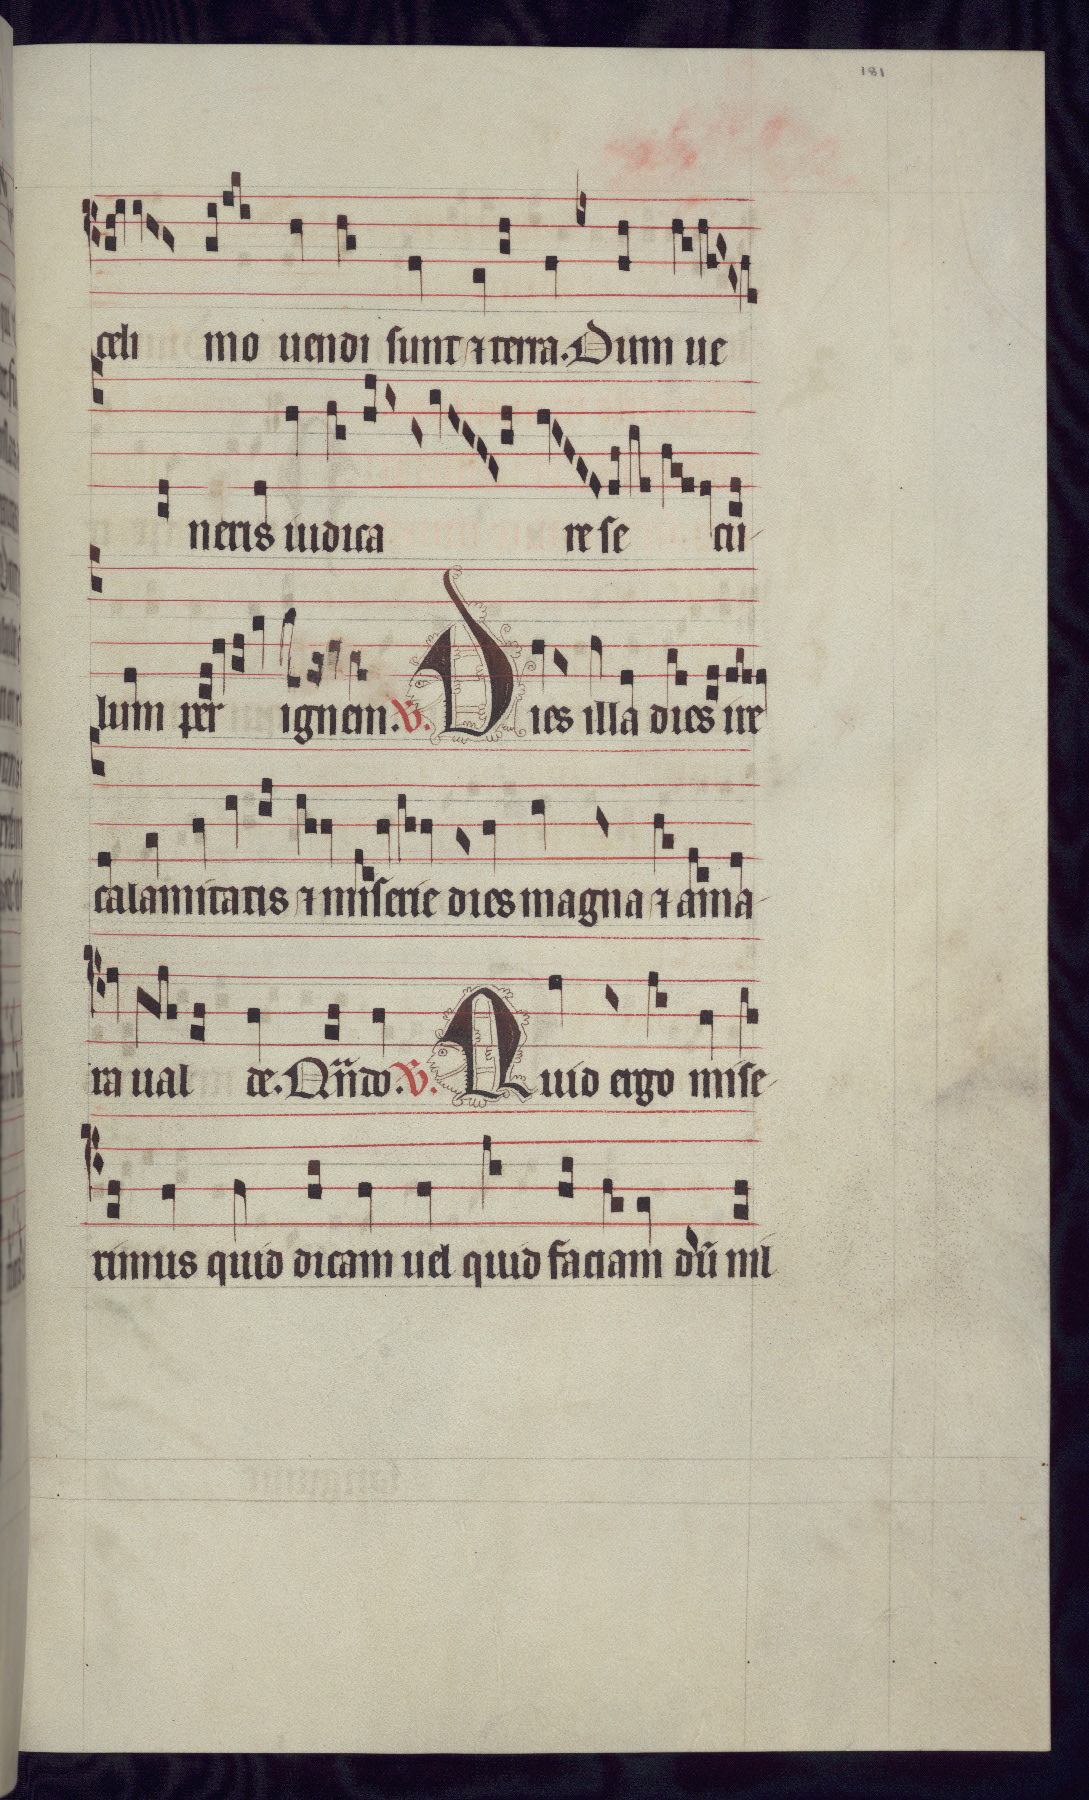 181
celi mo uendi sunt ⁊ terra. Dum ue
neris iudica re se cu-
lum per ignem. V. Dies illa dies ire
calamitatis ⁊ miserie dies magna ⁊ ama-
ra ual de. Qn̄do. V. Quid ergo mise-
rimus quid dicam uel quid faciam dū nil